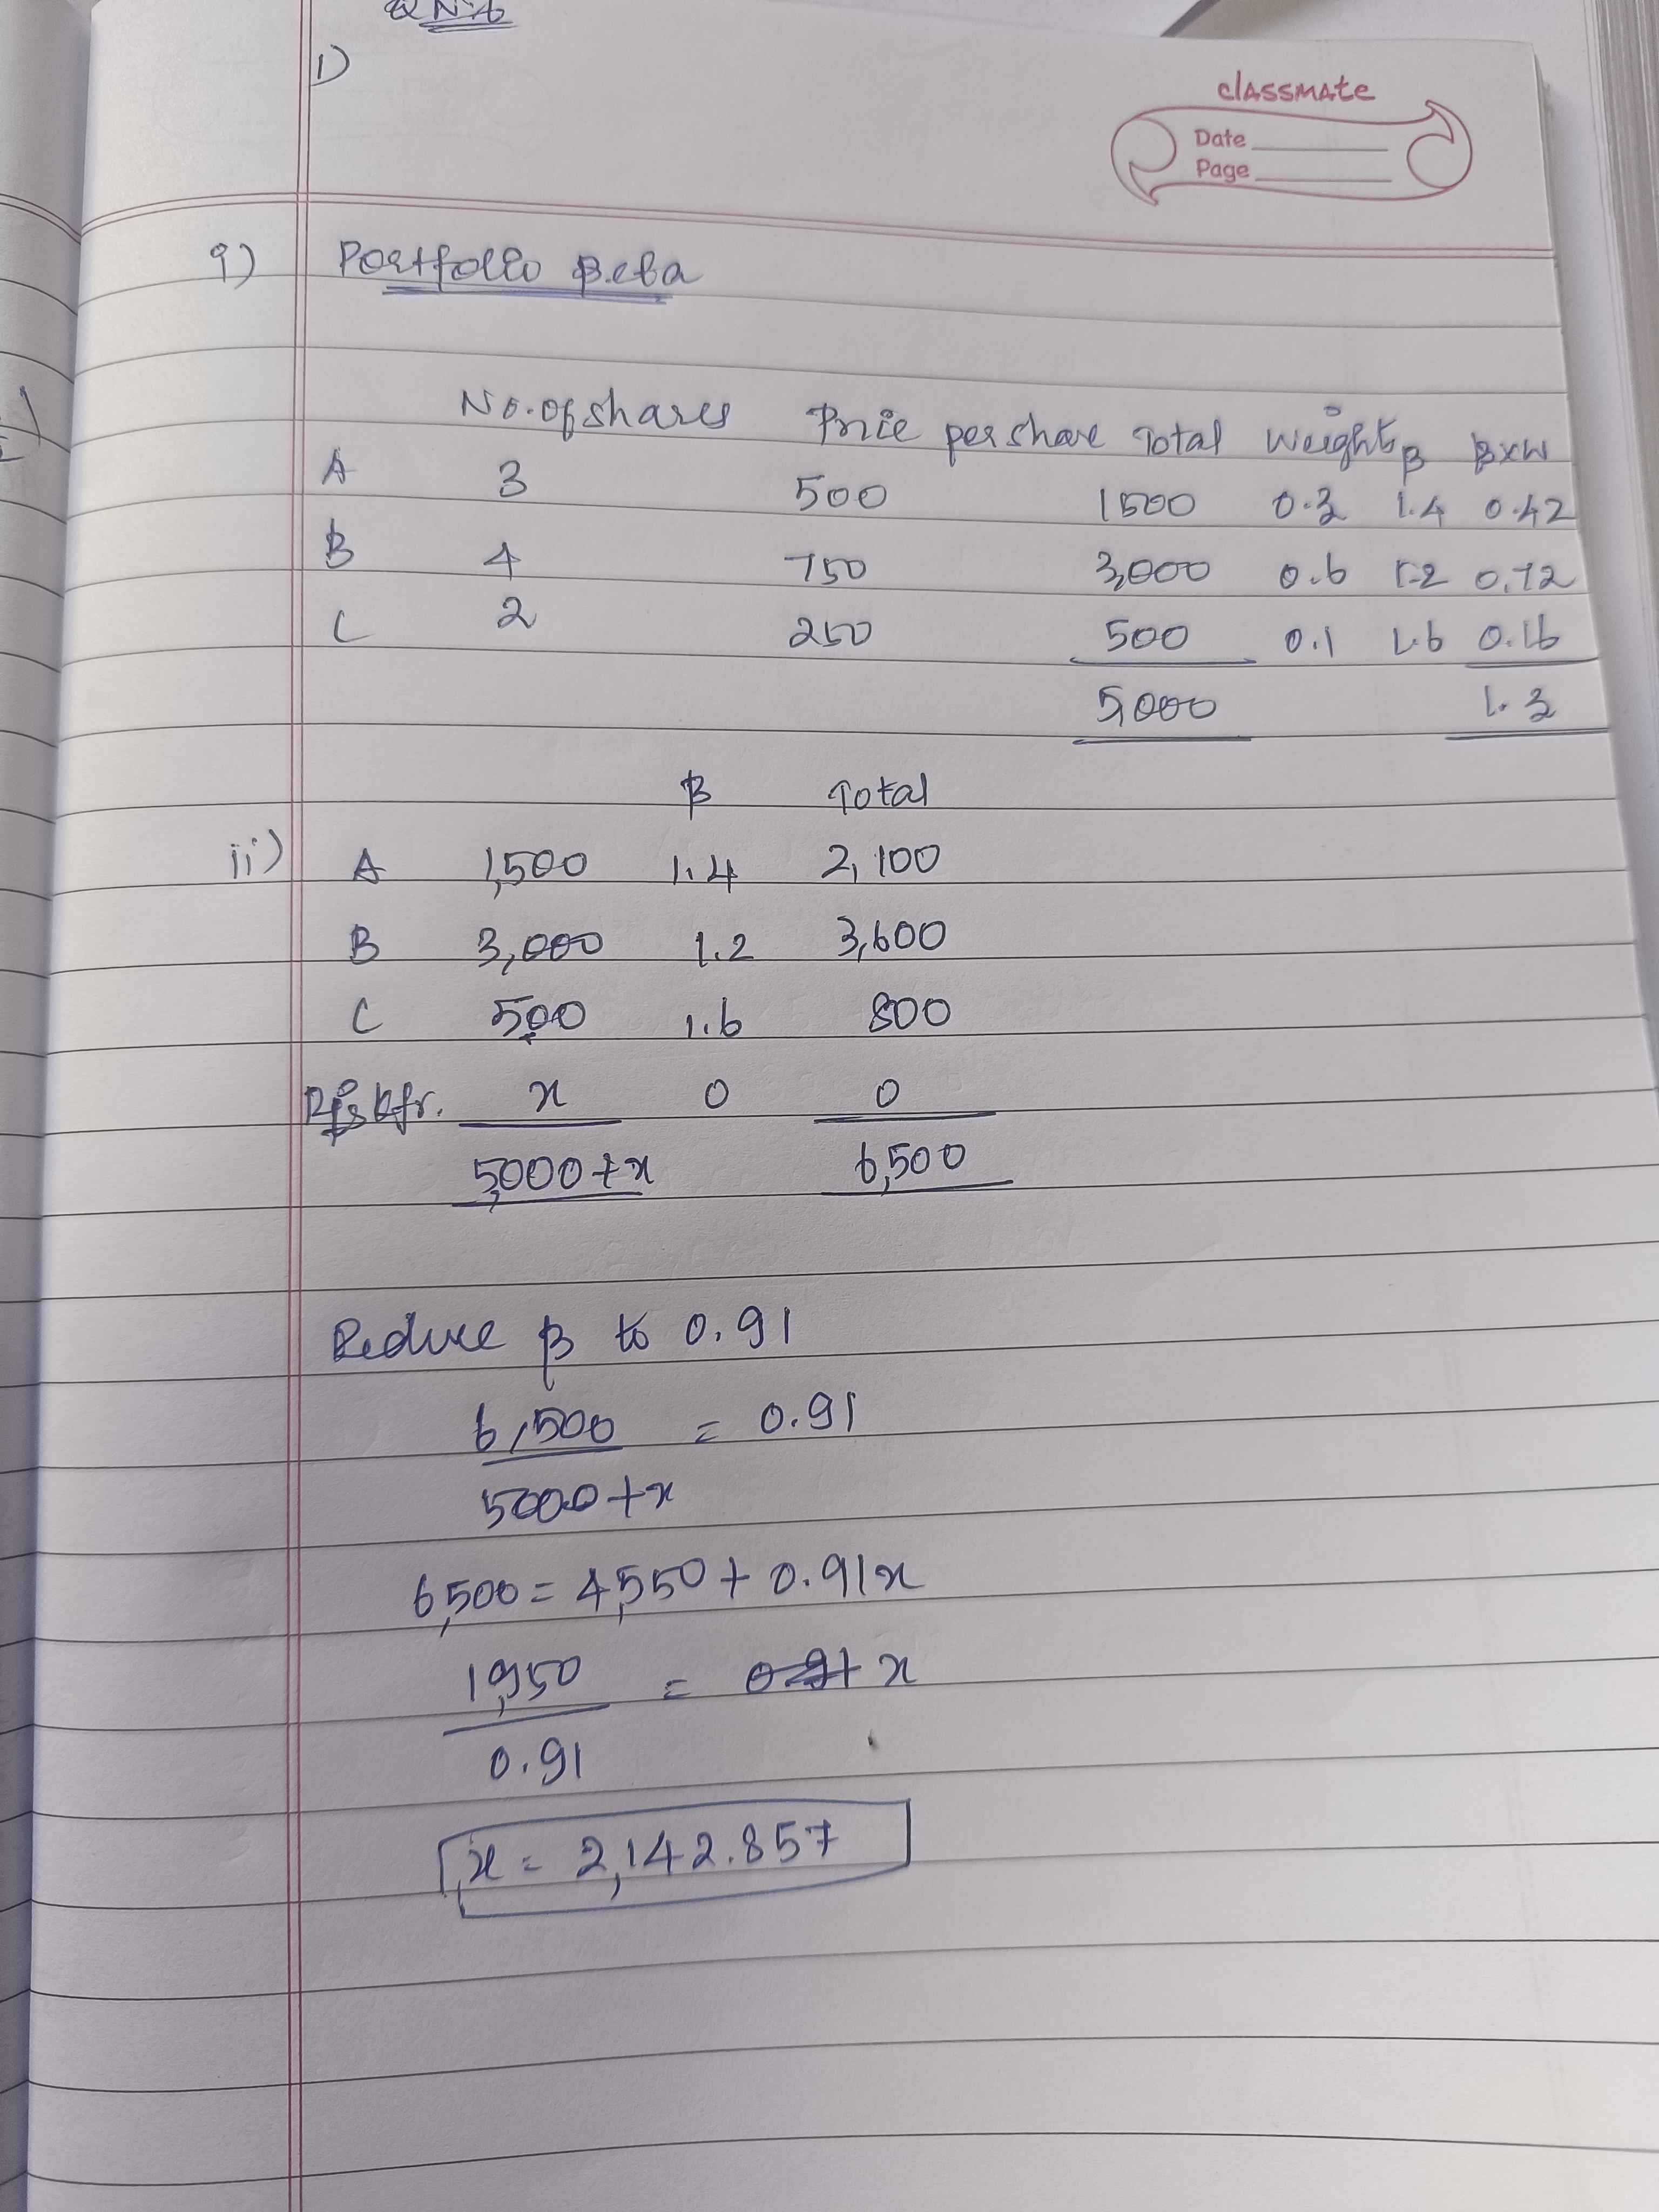 Q N:6
1)
classmate
Date
Page
i) Portfolio Beta
No. of shares Price per share Total Weights β β×W
A 3 500 1500 0.3 1.4 0.42
B 4 750 3,000 0.6 1.2 0.72
C 2 250 500 0.1 1.6 0.16
5,000 1.3
β Total
ii) A 1,500 1.4 2,100
B 3,000 1.2 3,600
C 500 1.6 800
Riskfr. x 0 0
5,000+x 6,500
Reduce β to 0.91
6,500 = 0.91
5000+x
6,500 = 4,550 + 0.91x
1,950 = 0.91 x
0.91
x = 2,142.857